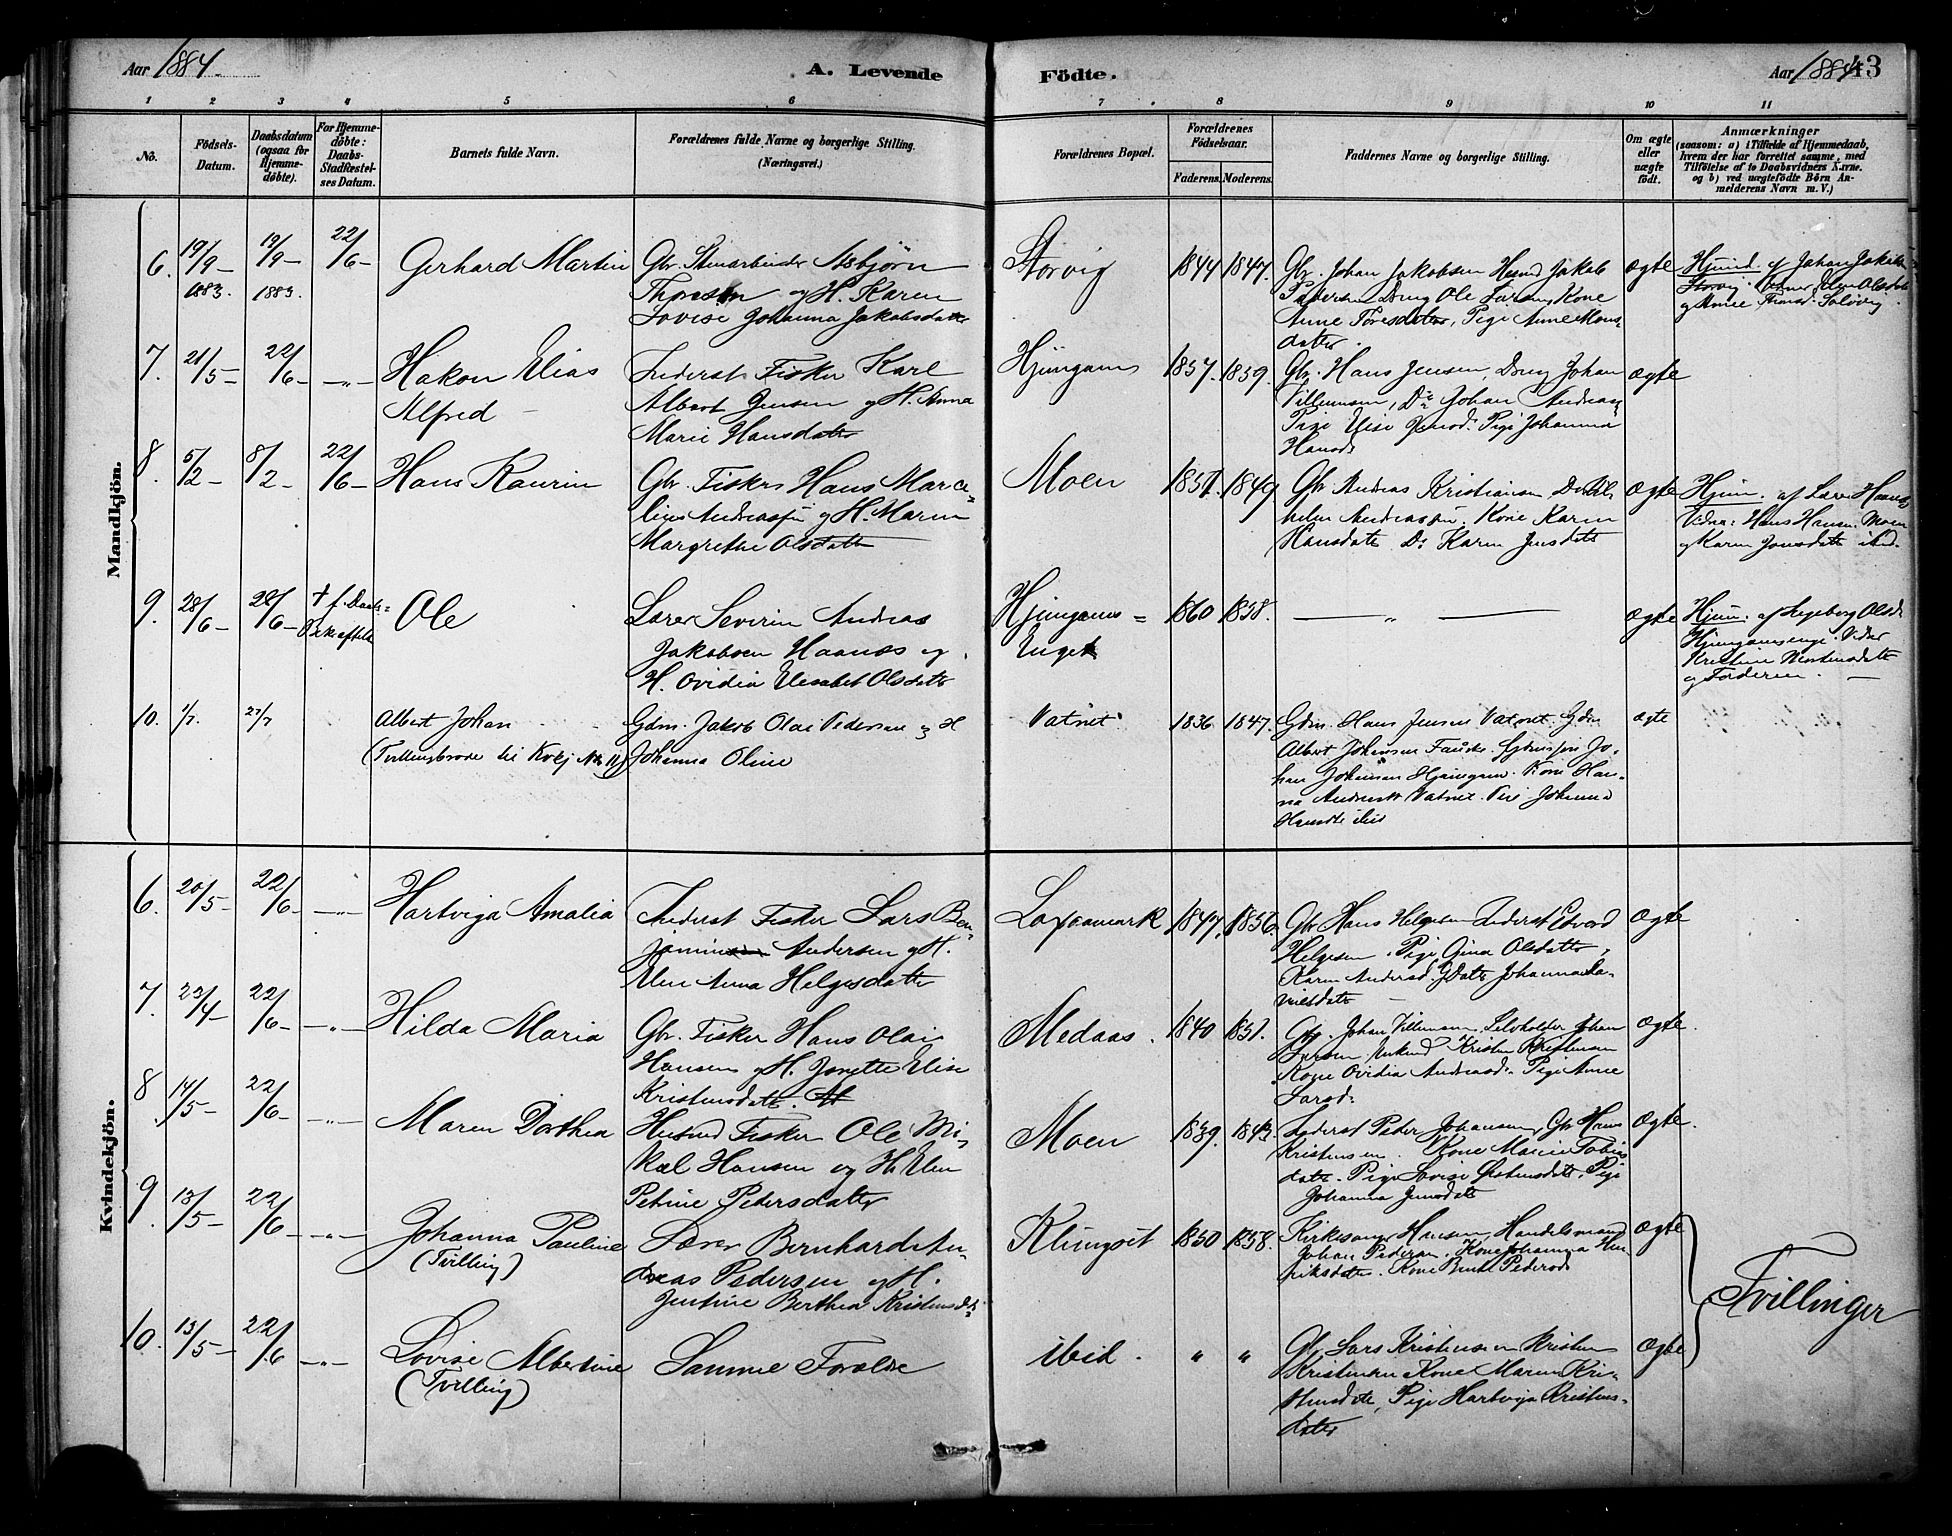 Aar 1884.
A. Levende
Födte.
Aar 1884
43
1 2 3 4 5 6 7 8 9 10 11
No.
Födsels-
Datum.
Daabsdatum
(ogsaa for
Hjemme-
döbte).
For Hjemme-
döbte:
Daabs-
Stadfæstel-
ses Datum.
Barnets fulde Navn.
Forældrenes fulde Navne og borgerlige Stilling.
(Næringsvei.)
Forældrenes Bopæl.
Forældrenes
Födselsaar.
Faderens. Moderens.
Faddernes Navne og borgerlige Stilling.
Om ægte
eller
uægte
födt.
Anmærkninger
(saasom: a) i Tilfælde af Hjemmedaab,
hvem der har forrettet samme, med
Tilföielse af to Daabsvidners Navne.
og b) ved uægtefödte Börn An-
melderens Navn m. V.)
Mandkjön.
6. 19/9 – 1883. 19/9 – 1883. 22/6 –
Gerhard Martin
Gbr. Stenarbeider Asbjörn
og H. Karen
Lovise Johanna Jakobsdatter
Storvig
1844 1847.
Gbr. Johan Jakobsen Husmd Jakob
Pedersen Dreng Ole Larsen, Kone
Anne Toresdatter, Pige Anne Mons-
datter.
ægte
Hjemd. af Johan Jakobs
Storvig.
7. 21/5 – 22/6 – – „ –
Hakon Elias
Alfred –
Inderst Fisker Karl
Albert Jensen og H. Anna
Marie Hansdatter
Hjüngam
1857. 1859.
Gbr. Hans Jensen, Dreng Johan
Villumsen, Do Johan Andreas
Pige Elise Jensd. Pige Johanna
Hansd.
ægte
8. 5/2 – 8/2 – 22/6 –
Hans Kaurin
Gbr. Fisker Hans Marce-
lius Andreassen og H. Maren
Margrethe Olsdatter
Moen
1851. 1849
Gbr Andreas Kristiansen
helm Andreassen. Kone Karen
Hansdatter Do Karen Jensdatter
ægte
Hjem. af Lærer Haanes
Vidner: Hans Hansen Moen
og Karen Jonsdatter ibid.
9. 28/6 – 28/6 – † f. Daabs-
Ole
Lærer Severin Andreas
Jakobsen Haanæs og
H. Ovidia Elesabet Olsdatter
Hjüngams-
Enget
1860 1858.
– „ –
ægte
Hjem: af Ingeborg Olsd.
Hjüngamsenge. Vidner
Kristine
og Faderen. –
10. 1/7. 27/7
Albert Johan
(Tvillingbroder til Kvkj No 11)
Gdm. Jakob Olai Pedersen og H
Johanna Oline
Vatnet.
1836 1847.
Gdm. Hans Jensen Vatnet. Gdm
Albert Johansen Fauske. Gdmssøn Jo-
han Johansen Hjüngam. Kone Han-
na Andreasdt Vatnet. Pige Johanna
Hansdt ibid
ægte
Kvindekjön.
6. 20/5 – 22/6 – – „ –
Hartviga Amalia
Inderst Fisker Lars Ben-
jamin Andersen og H.
Elen Anna Helgesdatter
Laxaamark
1847. 1856.
Gbr Hans Helgesen Inderst Edvard
Helgesen. Pige Gina Olsdatter,
Karen Andersd. Gdatter Johanna Da-
nielsdatter –
ægte
7. 23/4 – 22/6 – – „ –
Hilda Maria
Gbr. Fisker Hans Olai
Hansen og H. Jonette Elise
Kristensdatter.
Medaas.
1840 1851.
Gbr. Johan Villumsen, Selvholder Johan
Larsen Enkemd Kristen Kristensen
Kone Ovidia Andreasd. Pige Anne
Larsd.
ægte.
8. 14/5 – 22/6 – – „ –
Maren Dorthea
Husmd Fisker Ole Mi-
kal Hansen og H. Elen
Petrine Pedersdatter
Moen
1839. 1843.
Inderst Peder Johansen, Gbr Hans
Kristensen. Kone Maren Tobias
datter. Pige Lovise Kristensdatter. Pige
Johanna Jensdatter
ægte.
9. 13/5 – 22/6 – – „ –
Johanna Pauline
(Tvilling)
Lærer Bernhard An-
dreas Pedersen og H.
Jentine Berthea Kristensdt.
Klungset
1850 1858.
Kirkesanger Hansen, Handelsmand
Johan Pedersen. Kone Johanna Hen-
riksdatter. Kone Berthe Pedersd.
ægte
Tvillinger
10. 13/5 – 22/6 – „ –
Lovise Albertine
(Tvilling)
Samme Forældre
ibid.
„ „
Gbr Lars Kristensen Kristen
Kristensen Kone Maren Kri-
stensdatter, Pige Hartviga Kristens-
datter
ægte